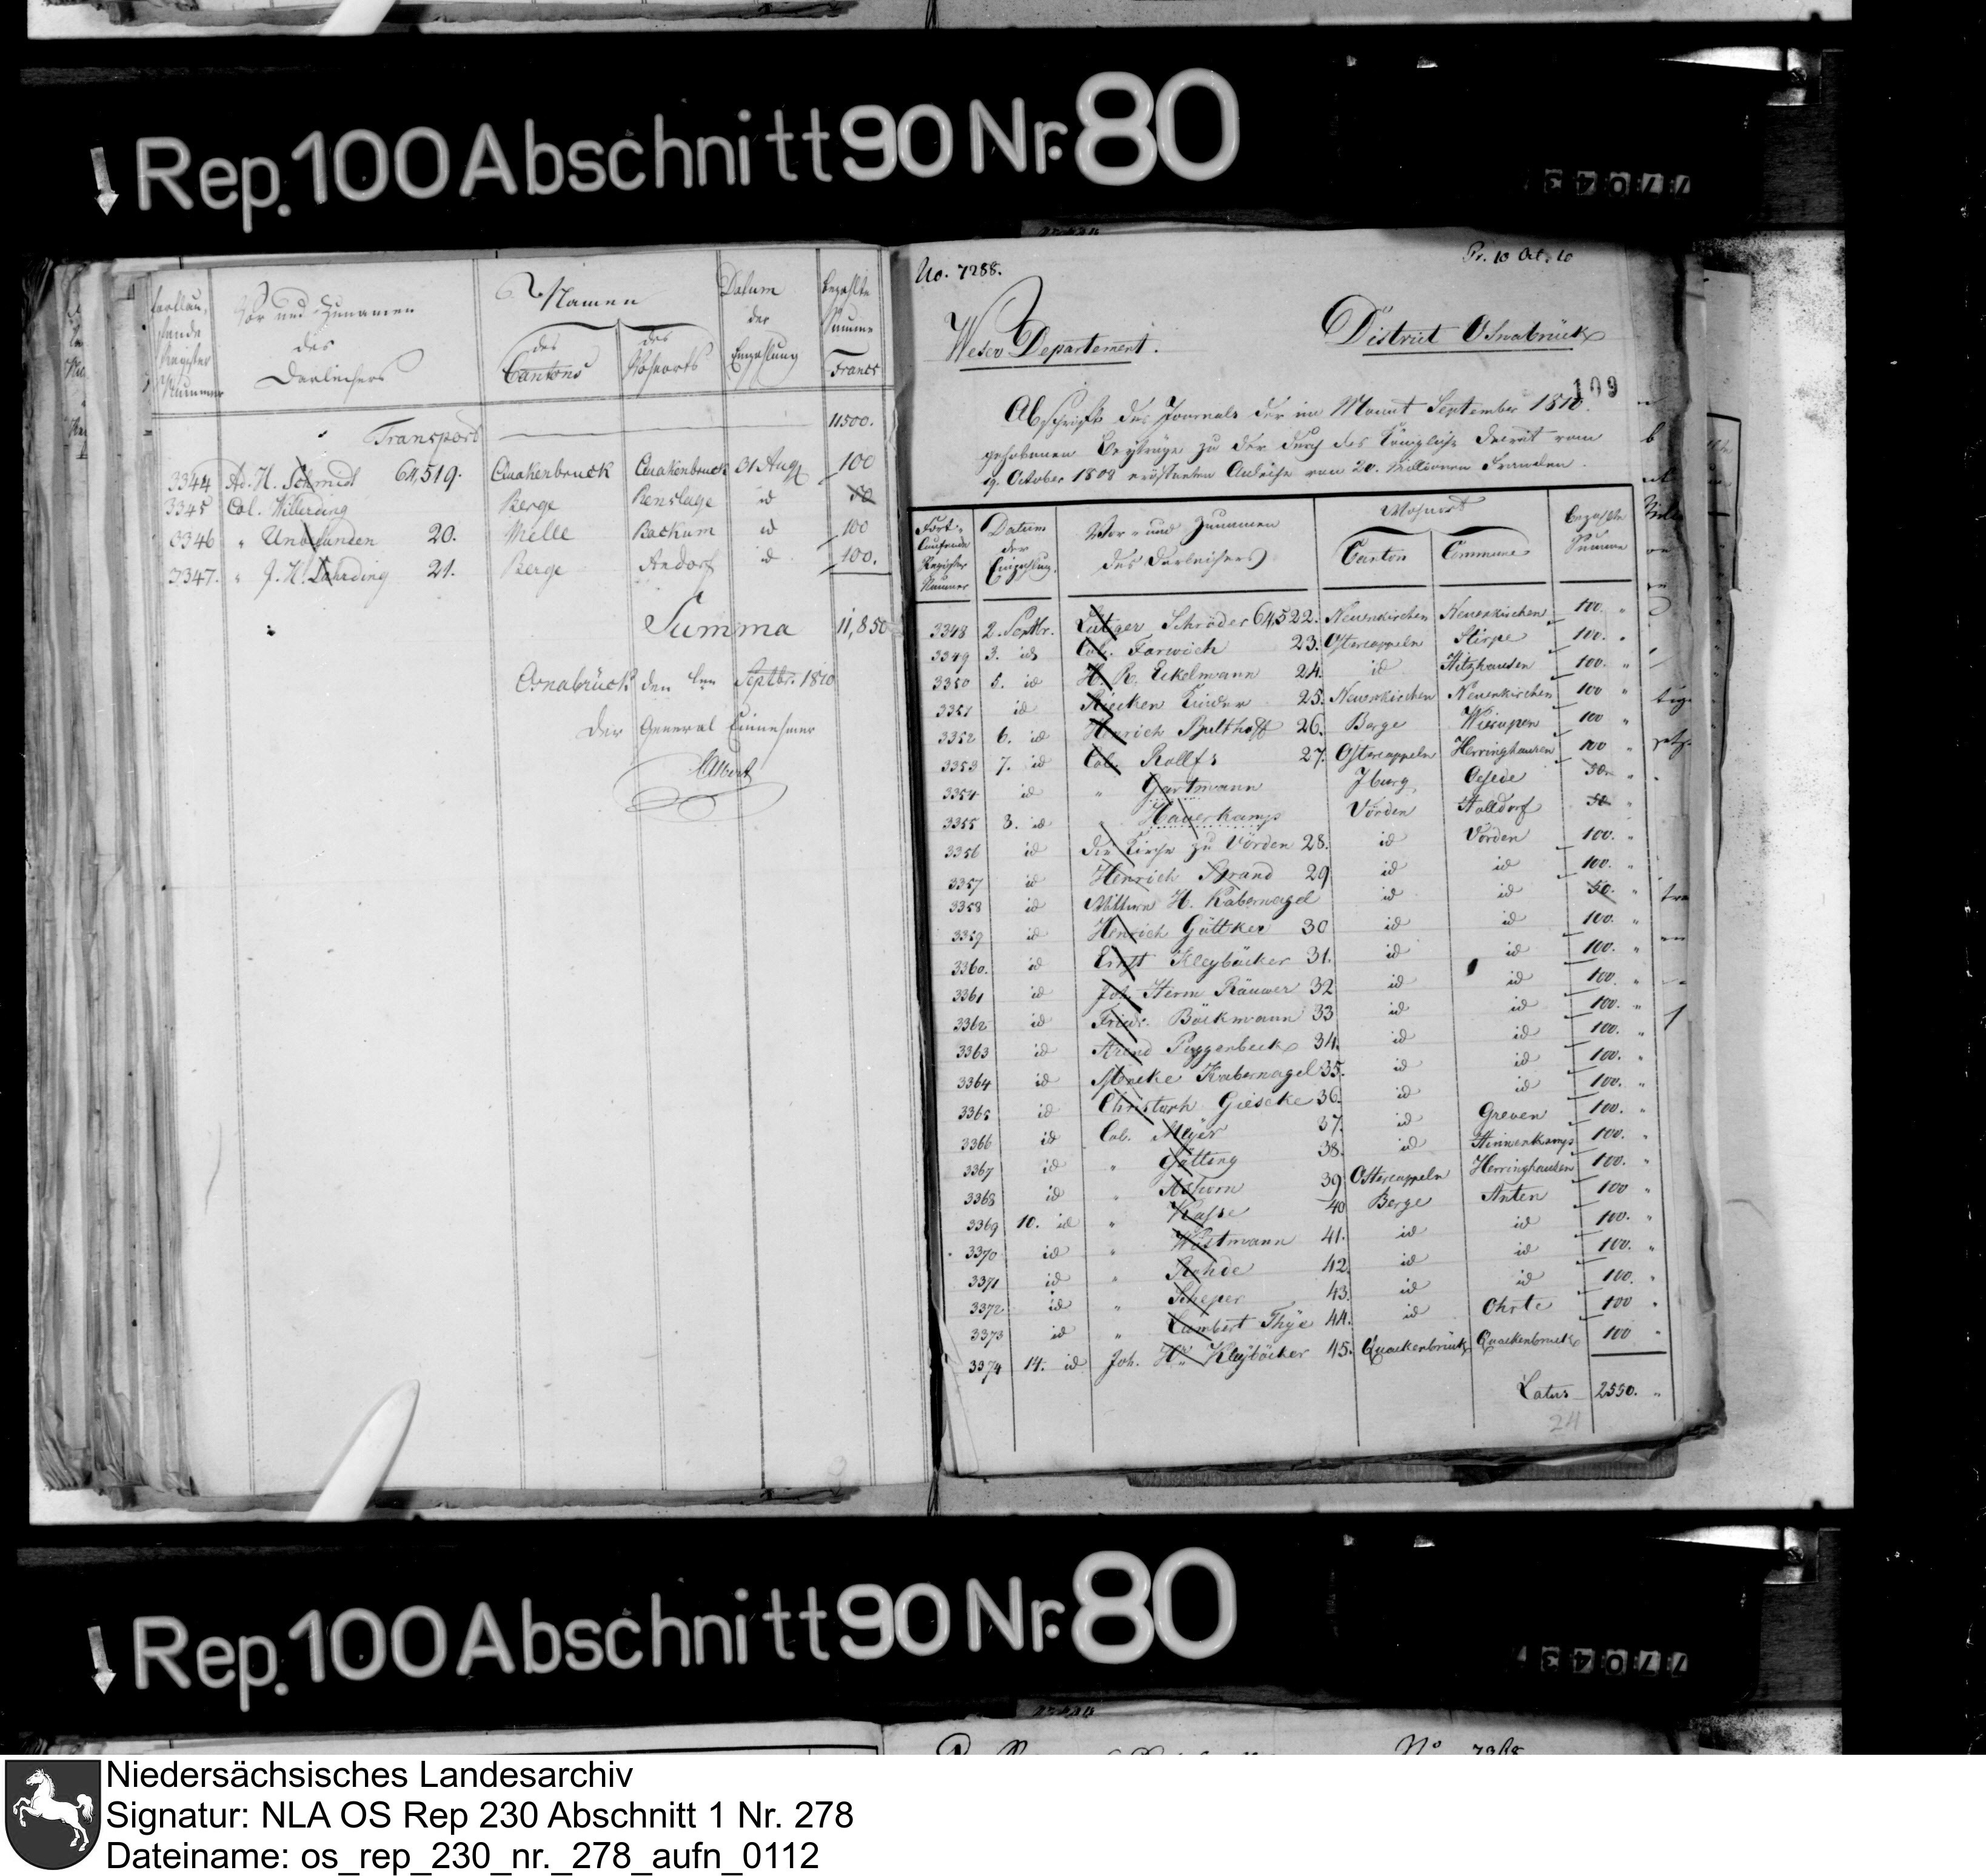 Rep. 100 Abschnitt 90 Nr. 80
77043
Vor und Zunamen
des
Darleihers
Namen
des
Cantons
des
Wohnorts
Datum
der
Einzahlung
bezahlte
Summe
Francs
fortlaufende
Register
Nummer
Transport 11500.
3344 Ad. H. Schmidt 64,519. Quakenbruck Quakenbruck 31 Aug 100
3345 Col. Willerding Berge Renslage id 50
3346 " Unbefunden 20. Melle Bockum id 100
3347. " J. H. Lührding 21. Berge Andorf id 100.
Summa 11,850
Osnabrück den Septbr. 1810
Der General Einnehmer
Albert
No. 7288.
Pr. 10 Oct. 10
Weser Departement.
District Osnabrück
109
Abschrift des Journals der im Monat September 1810.
gehobenen Beyträge zu der durch das Königliche Decret vom
19. October 1808 eröffneten Anleihe von 20. Millionen Franken.
Fort-
laufende
Register
Nummer
Datum
der
Einzahlung.
Vor- und Zunamen
des Darleihers
Wohnort
Canton
Commune
bezahlte
Summe
3348 2. Septbr. Lütger Schröder 64,522. Neuenkirchen Neuenkirchen 100. "
3349 3. id Col. Farwick 23. Ostercappeln Stirpe 100. "
3350 5. id H. R. Eckelmann 24. id Hitzhausen 100. "
3351 id Riecken Kinder 25. Neuenkirchen Neuenkirchen 100 "
3352 6. id Henrich Bulthoff 26. Berge 100 "
3353 7. id Col. Rolfs 27. Ostercappeln Herringhausen 100 "
3354 id " Gartmann Iburg Oesede 50 "
3355 8. id " Haverkamp Vörden Holldorf 50 "
3356 id die Kirche zu Vörden 28. id Vörden 100. "
3357 id Henrich Brand 29 id id 100. "
3358 id Wittwe H. Kabernagel id id 50. "
3359 id Henrich Göttker 30 id id 100. "
3360. id Ernst Kleybäcker 31. id id 100. "
3361 id Joh. Herm Räuwer 32 id id 100. "
3362 id Friedr. Böckmann 33 id id 100. "
3363 id Arend Poggenbeck 34. id id 100. "
3364 id Kabernagel 35. id id 100. "
3365 id Christoph Gieseke 36. id id 100. "
3366 id Col. Meyer 37. id Greven 100. "
3367 id " Götting 38. id Hinnenkamp 100. "
3368 id " Ahorn 39 Ostercappeln Herringhausen 100. "
3369 10. id " Kasse 40 Berge Anten 100 "
3370 id " Wostmann 41. id id 100. "
3371 id " Rohde 42. id id 100. "
3372 id " Scheper 43. id id 100. "
3373 id " Lambert Thye 44. id Ohrte 100 "
3374 14. id Joh. H. Kleyböcker 45. Quackenbrück Quackenbrück 100 "
Latus 2550. "
24
Rep. 100 Abschnitt 90 Nr. 80
77043
Niedersächsisches Landesarchiv
Signatur: NLA OS Rep 230 Abschnitt 1 Nr. 278
Dateiname: os_rep_230_nr._278_aufn_0112